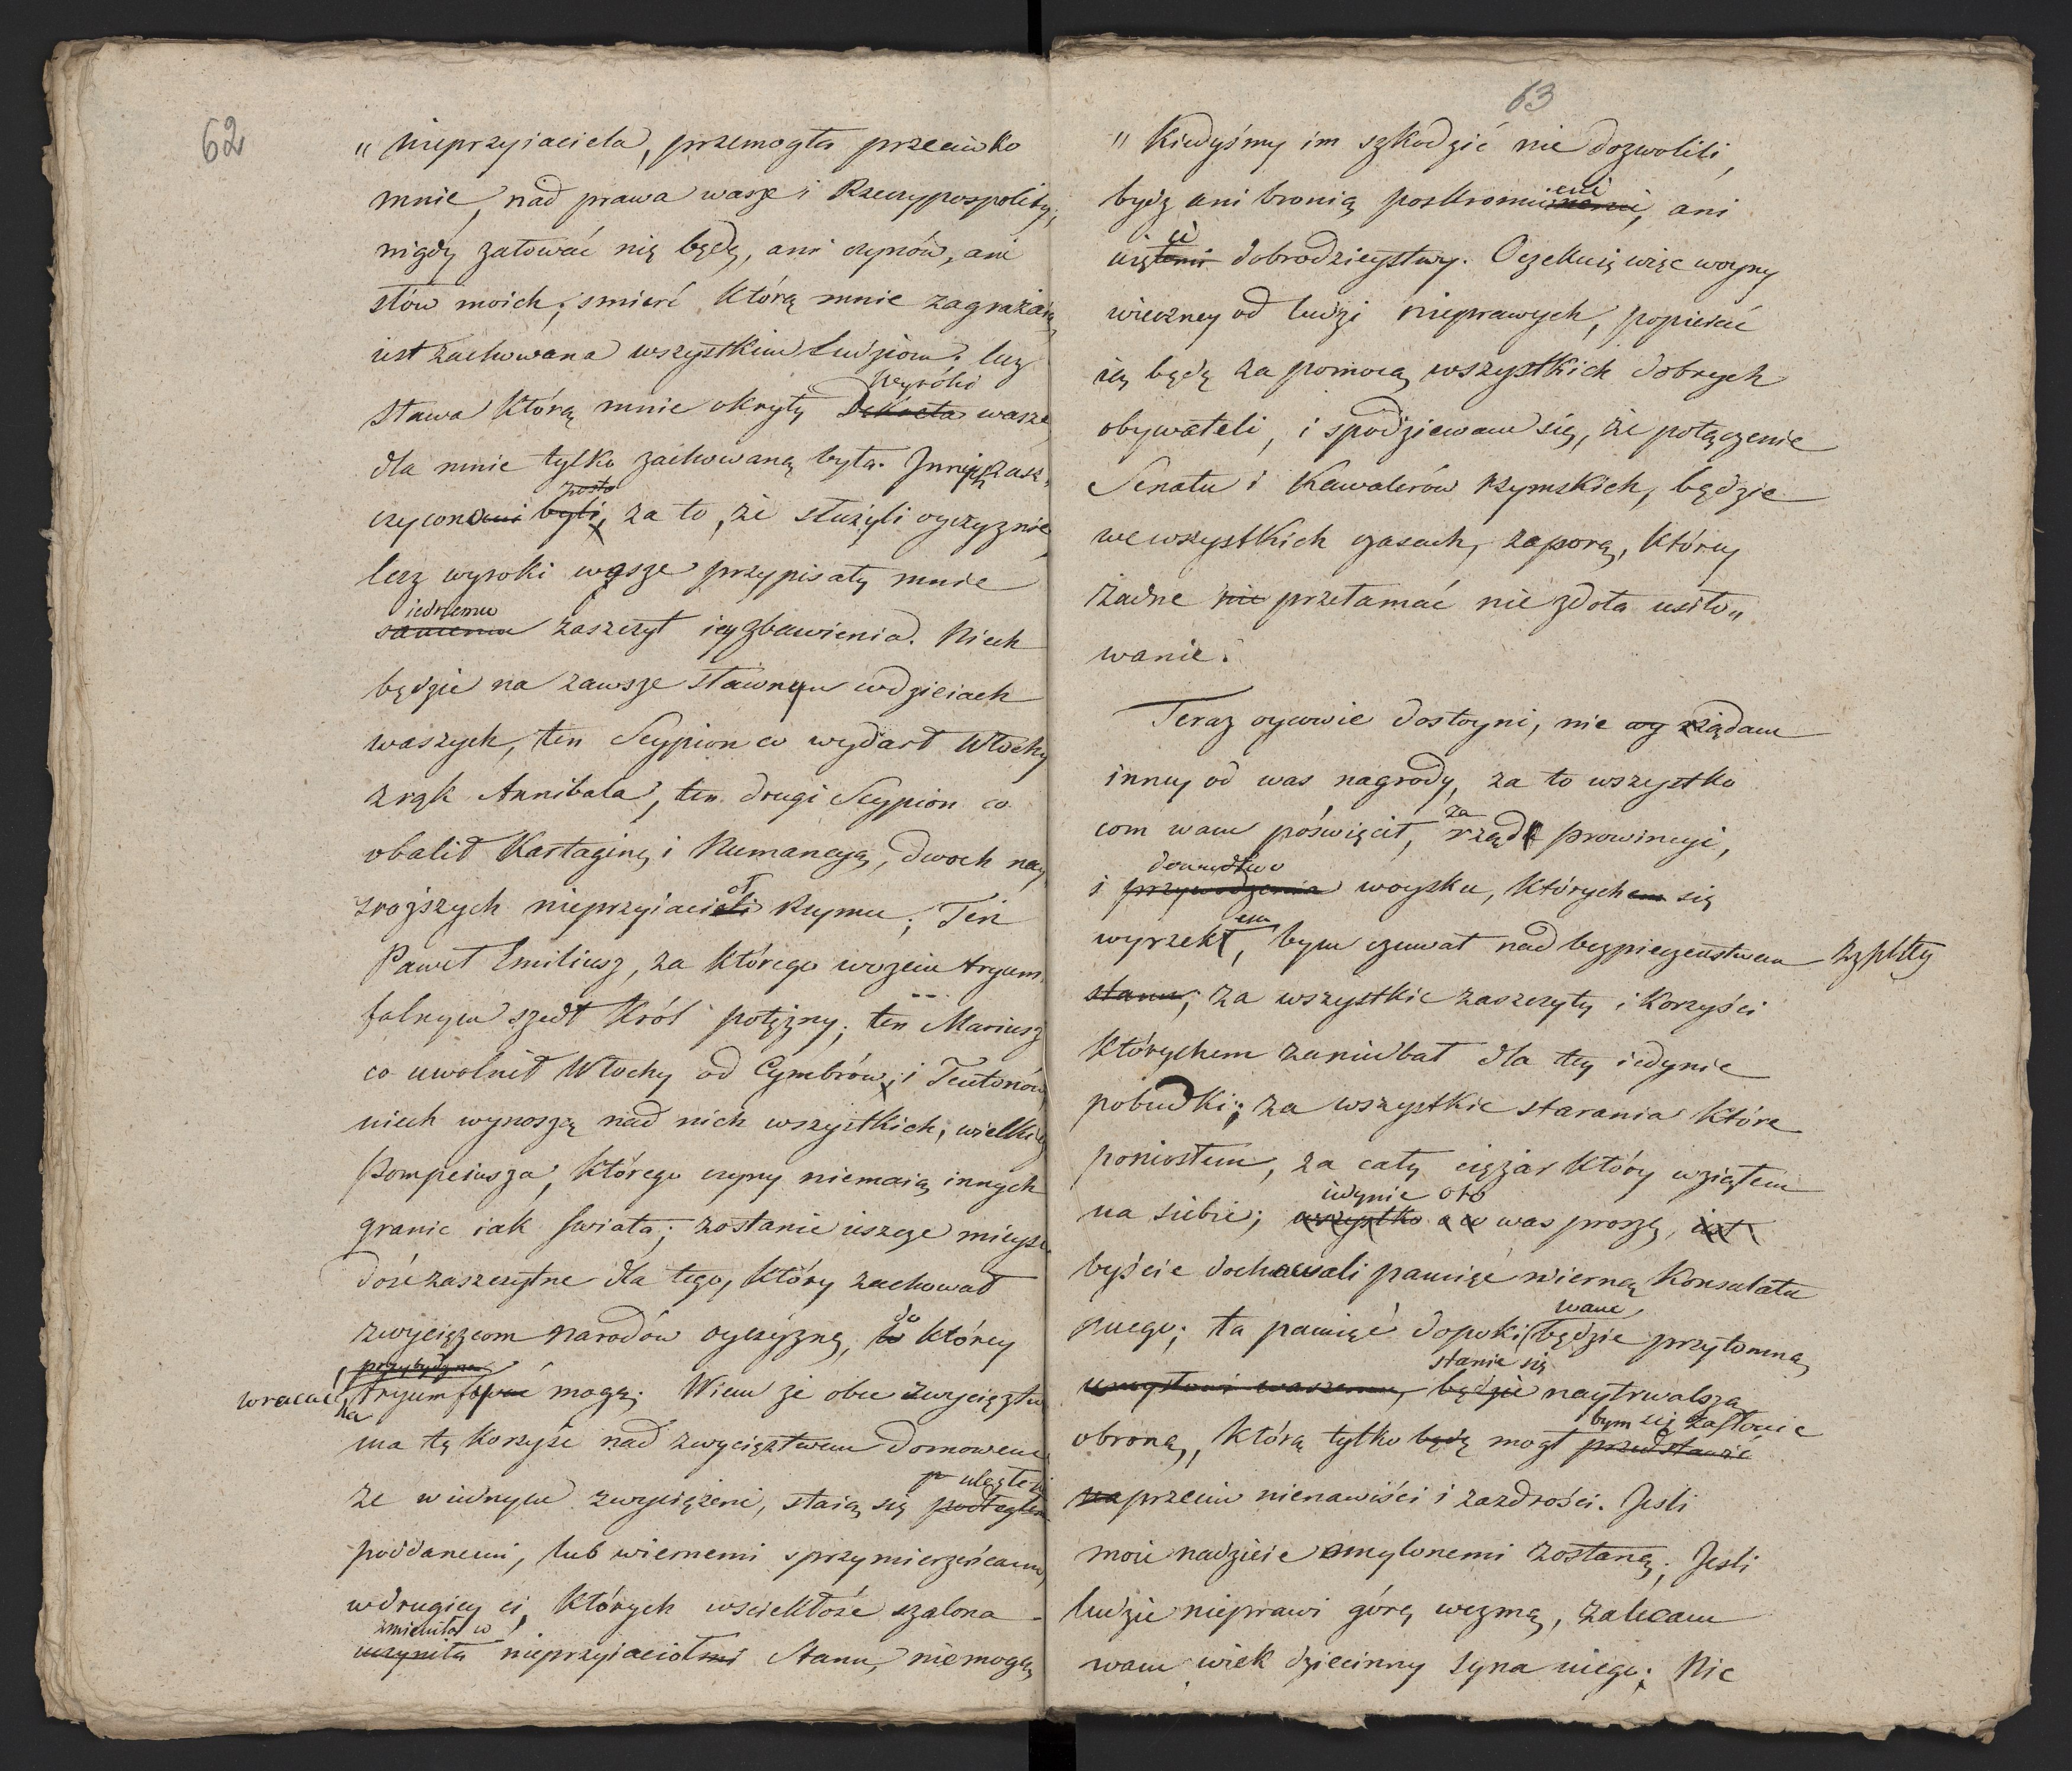 62
„ nieprzyiaciela, przemogła przeciwko
mnie, nad prawa wasze i Rzeczypospolitej,
nigdy żałować nię będę, ani czynów, ani
słów moich; smierć którą mnie zagrażaią
iest zachowana wszystkim ludziom. lecz
wyroki
sława którą mnie okryły Dekreta wasze
dla mnie tylko zachowaną była. Innych zasz„
zosta
czyconemi byli, za to, że służyli oyczyznie
lecz wyroki wasze przypisały mnie
iednemu
samemu zaszczyt iey zbawienia. Niech
będzie na zawsze sławnym wdzieiach
waszych, ten Scypion co wydarł Włochy
zrąk Annibala, ten drugi Scypion co
obalił Kartaginę i Numancyą, dwoch nay
sroższych nieprzyiacieli Rzymu; Ten
Paweł Emiliusz, za którego wozem tryum„
falnym szedł Król potężny; ten Mariusz
co uwolnił Włochy od Cymbrów, i Teutonów
niech wynoszą nad nich wszystkich, wielkie
Pompeiusza, którego czyny niemaią innych
granic iak swiata; zostanie ieszcze mieysc
dość zaszczytne dla tego, który zachował
do
zwycięzcom narodów oyczyznę, w którey
przybydzne
wracać, tryumfować mogą. Wiem że obce zwycięztw
na
ma tę korzyść nad zwycięztwem domowem
uległe
że wiednym zwyciężeni, staią się podległem
poddanemi, lub wiernemi sprzymierzeńcami,
wdrugiey ci, których wsciekłość szalona
zmieniła w
uczyniła nieprzyiaciołmi Stanu, niemogą
63
„ Kiedyśmy im szkodzić nie dozwolili,
eni
bydz ani bronią poskromieniemi, ani
ci
uięłemi dobrodzieystwy. Oczekuię więc woyny
wieczney od ludzi nieprawych, popierać
ią będę za pomocą wszystkich dobrych
obywateli, i spodziewam się, że połączenie
Senatu i Kawalerów rzymskich, będzie
we wszystkich czasach, zaporą, którey
żadne nie przełamać nie zdoła usiło„
wanie.
Teraz oycowie dostoyni, nie og żądam
inney od was nagrody, za to wszystko
za
com wam póświęcił, rząd prowincyi,
dowodztwo
i przywodzenia woysku, którychem się
em
wyrzekł, bym czuwał nad bezpieczeństwem Rzplity
stanu; za wszystkie zaszczyty i korzyści
którychem zaniedbał dla tey iedynie
pobudki; za wszystkie starania które
poniosłem, za cały ciężar który wziąłem
iedynie oto
na siebie; wszystko a co was proszę, iest
byście dochowali pamięć wierną Konsulatu
wam
mego; ta pamięć dopoki będzie przytomną
stanie się
umysłowi waszemu, będzie naytrwalszą
bym się zasłonić
obroną, którą tylko będę mogł przedstawić
naprzeciw nienawiści i zazdrości. Jesli
moie nadzieie omylonemi zostaną; Jesli
ludzie nieprawi górę wezmą, zalecam
wam wiek dziecinny syna mego; Nie